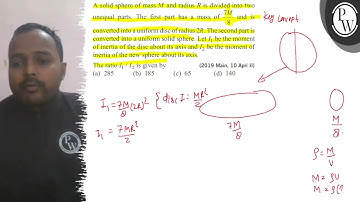 A solid sphere of mass M and radius R is divided into two
unequal parts. The first part has a mass of 7M/8 and is
converted into a uniform disc of radius 2R. The second part is
converted into a uniform solid sphere. Let I₁ be the moment
of inertia of the disc about its axis and I₂ be the moment of
inertia of the new sphere about its axis.
The ratio I₁ : I₂ is given by (2019 Main, 10 April II)
(a) 285 (b) 185 (c) 65 (d) 140
Key concept
I₁ = 7M/8 (2R)² { disc I = MR²/2
I₁ = 7MR²/2
7M/8
M/8
ρ = M/V
M = ρV